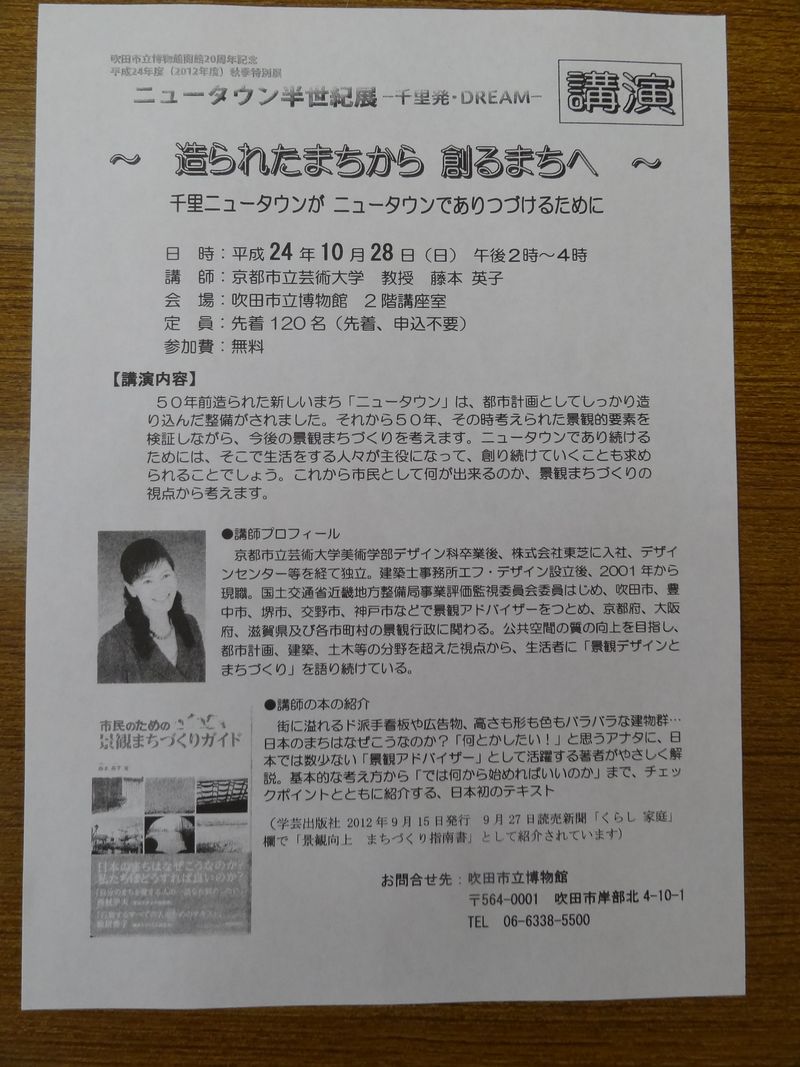 吹田市立博物館開館20周年記念
平成24年度（2012年度）秋季特別展
ニュータウン半世紀展－千里発・DREAM－
講演
～ 造られたまちから 創るまちへ ～
千里ニュータウンが ニュータウンでありつづけるために
日 時：平成 24 年 10 月 28 日（日） 午後２時～４時
講 師：京都市立芸術大学 教授 藤本 英子
会 場：吹田市立博物館 ２階講座室
定 員：先着120名（先着、申込不要）
参加費：無料
【講演内容】
５０年前造られた新しいまち「ニュータウン」は、都市計画としてしっかり造
り込んだ整備がされました。それから５０年、その時考えられた景観的要素を
検証しながら、今後の景観まちづくりを考えます。ニュータウンであり続ける
ためには、そこで生活をする人々が主役になって、創り続けていくことも求め
られることでしょう。これから市民として何が出来るのか、景観まちづくりの
視点から考えます。
●講師プロフィール
京都市立芸術大学美術学部デザイン科卒業後、株式会社東芝に入社、デザイ
ンセンター等を経て独立。建築士事務所エフ・デザイン設立後、2001 年から
現職。国土交通省近畿地方整備局事業評価監視委員会委員はじめ、吹田市、豊
中市、堺市、交野市、神戸市などで景観アドバイザーをつとめ、京都府、大阪
府、滋賀県及び各市町村の景観行政に関わる。公共空間の質の向上を目指し、
都市計画、建築、土木等の分野を超えた視点から、生活者に「景観デザインと
まちづくり」を語り続けている。
●講師の本の紹介
街に溢れるド派手看板や広告物、高さも形も色もバラバラな建物群…
日本のまちはなぜこうなのか？「何とかしたい！」と思うアナタに、日
本では数少ない「景観アドバイザー」として活躍する著者がやさしく解
説。基本的な考え方から「では何から始めればいいのか」まで、チェッ
クポイントとともに紹介する、日本初のテキスト
（学芸出版社 2012 年 9 月 15 日発行 9 月 27 日読売新聞「くらし 家庭」
欄で「景観向上 まちづくり指南書」として紹介されています）
市民のための
景観まちづくりガイド
日本のまちはなぜこうなのか？
私たちはどうすれば良いのか？
お問合せ先：吹田市立博物館
〒564-0001 吹田市岸部北 4-10-1
TEL 06-6338-5500